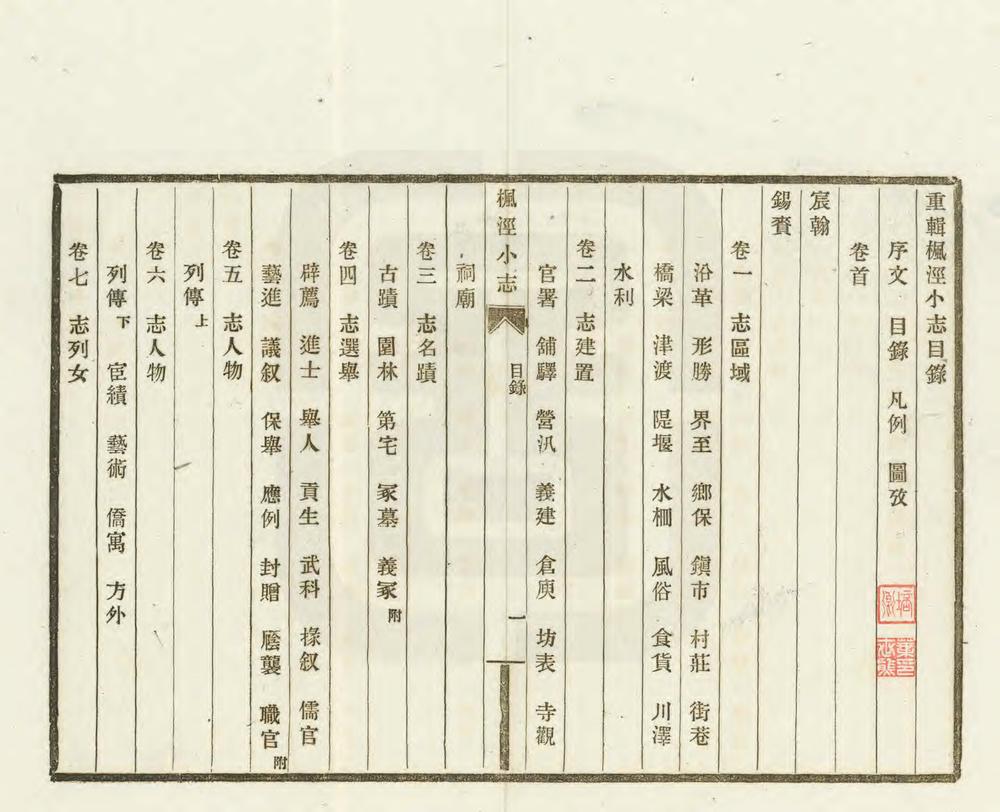 重輯楓涇小志目錄
序文 目錄 凡例 圖攷
卷首
宸翰
錫賚
卷一 志區域
沿革 形勝 界至 鄉保 鎭市 村莊 街巷
橋梁 津渡 隄堰 水柵 風俗 食貨 川澤
水利
卷二 志建置
官署 舖驛 營汛 義建 倉庾 坊表 寺觀
楓涇小志 目錄 一
祠廟
卷三 志名蹟
古蹟 園林 第宅 冢墓 義冢附
卷四 志選舉
辟薦 進士 舉人 貢生 武科 掾叙 儒官
藝進 議叙 保舉 應例 封贈 廕襲 職官附
卷五 志人物
列傳上
卷六 志人物
列傳下 宦績 藝術 僑寓 方外
卷七 志列女